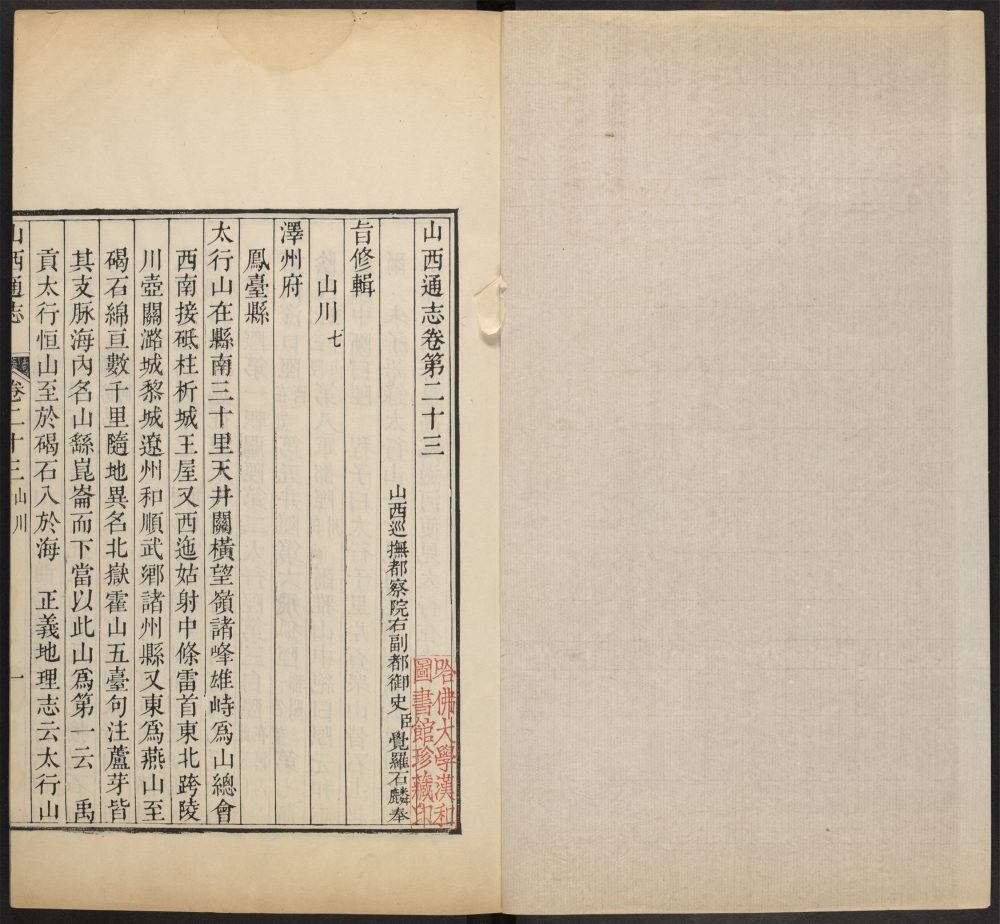 山西通志卷第二十三
山西巡撫都察院右副都御史臣覺羅石麟奉
旨修輯
山川七
澤州府
鳳臺縣
太行山在縣南三十里天井關橫望嶺諸峰雄峙爲山總會
西南接砥柱析城王屋又西迤姑射中條雷首東北跨陵
川壺關潞城黎城遼州和順武鄉諸州縣又東爲燕山至
碣石綿亘數千里隨地異名北嶽霍山五臺句注蘆芽皆
其支脉海內名山繇崑崙而下當以此山爲第一云 禹
貢太行恒山至於碣石入於海 正義地理志云太行山
山西通志 卷二十三 山川 一
哈佛大學漢和
圖書館珍藏印